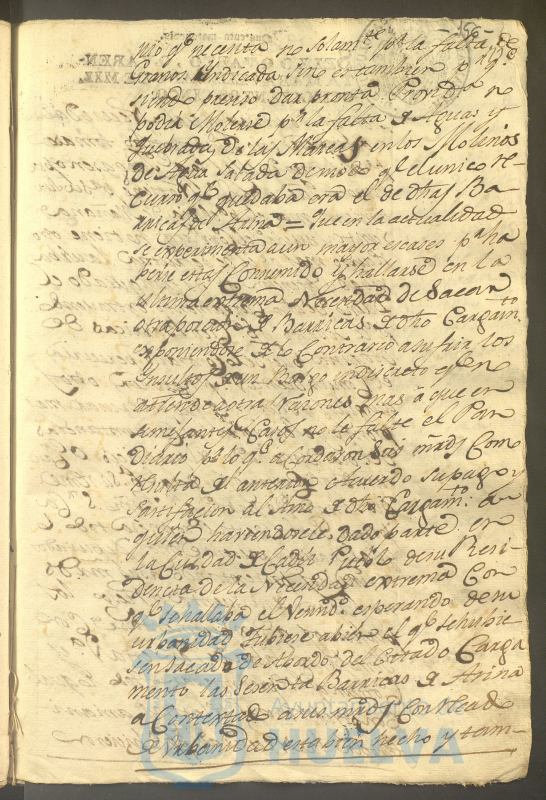 qº necesita no solamte pr la falta de
Granos Yndicada sino es tambien pr qe
siendo preciso dar pronta Provida no
poder Molerse pr la falta de Aguas y
quebradas de las Mareas en los Molinos
de Agua Salada demodo qe el unico re
curso qe quedaba era el de dhas Ba-
rricas de Arina = Que en la actualidad
se experimenta aun mayor escases pr ha
verse estas Consumido y hallarse en la
ultima extrema Necesidad de Sacar
otra porcion de Barricas de dho Cargamto
exponiendose de lo Contrario a sufrir los
Ynsultos de un Pueblo indiscreto qe no
atiende a otra Razones mas a que en
semejantes Casos no le falte el Pan
Diario pr lo qe acordaron Sus mrds Como
Consta de anterior Acuerdo su pago y
satisfacion al Amo de dho Cargamto: a
quien haviendosele dado parte en
la Ciudad de Cadiz Pueblo de su Resi-
dencia de la Necesidad extrema con
qe se hallaba el Vecindo esperando de su
urbanidad tubiere abien el qe se hubie
sen sacado de Abordo del Citado Carga
mento las Sesenta Barricas de Arina
a Contextado a sus mrds Con Real
Urbanidad esta bien hecho y tam-
AYUNTAMIENTO DE
HUELVA